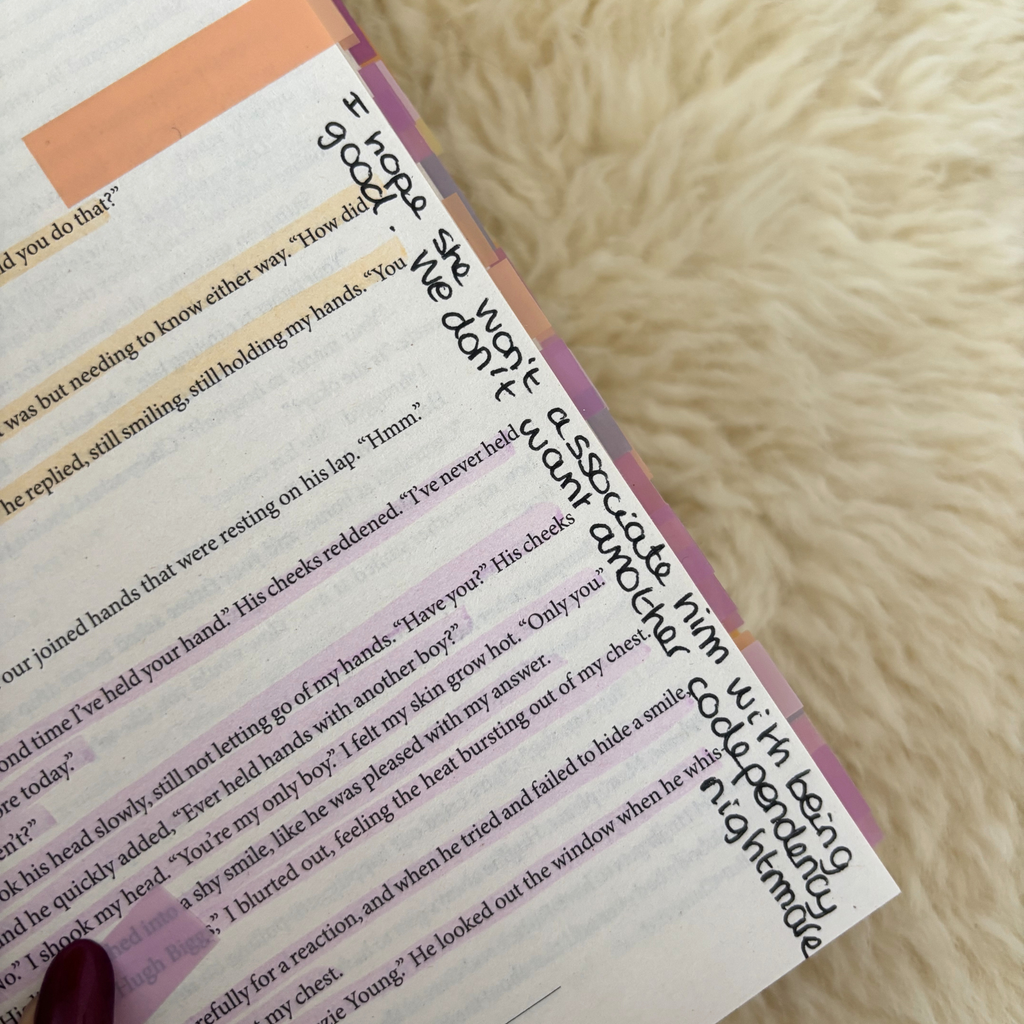 you do that?”
was but needing to know either way. “How did
he replied, still smiling, still holding my hands. “You
our joined hands that were resting on his lap. “Hmm.”
time I’ve held your hand.” His cheeks reddened. “I’ve never held
today.”
his head slowly, still not letting go of my hands. “Have you?” His cheeks
he quickly added, “Ever held hands with another boy?”
I shook my head. “You’re my only boy.” I felt my skin grow hot. “Only you.”
into a shy smile, like he was pleased with my answer.
Hugh Biggs,” I blurted out, feeling the heat bursting out of my chest.
for a reaction, and when he tried and failed to hide a smile,
my chest.
Young.” He looked out the window when he whis-
I hope she won't associate him with being
good. We don't want another codependency
nightmare